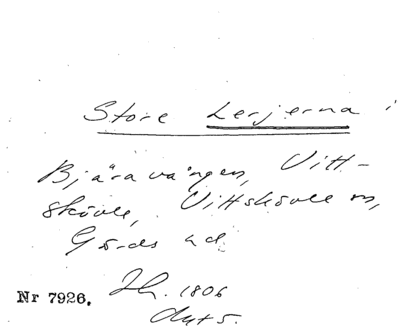 Store Lerjerna i
Bjäravången, Vitt-
skövle, Vittskövle sn,
Gärds hd
Nr 7926. Jh. 1806
Akt 5.